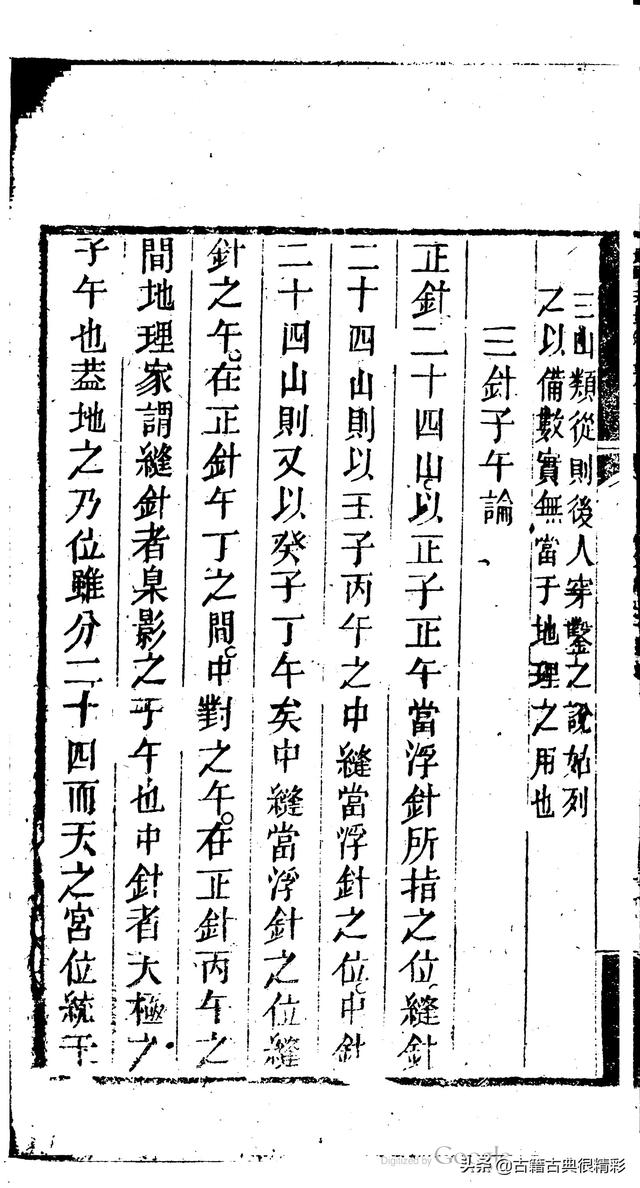 三山類從則後人穿鑿之說始列
之以備數實無當于地理之用也
三針子午論
正針二十四山以正子正午當浮針所指之位縫針
二十四山則以壬子丙午之中縫當浮針之位中針
二十四山則又以癸子丁午矣中縫當浮針之位縫
針之午在正針午丁之間中對之午在正針丙午之
間地理家謂縫針者臬影之子午也中針者大極之
子午也蓋地之乃位雖分二十四而天之宮位統于
Digitized by Google
头条@古籍古典很精彩